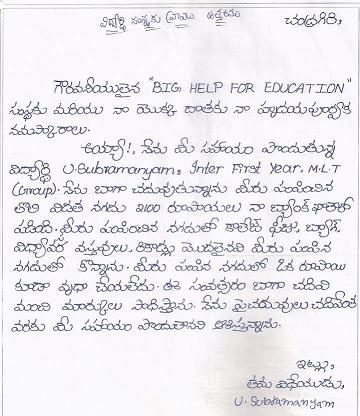 విద్యార్థి సంస్థకు వ్రాయు ఉత్తరము
చంద్రగిరి,
గౌరవనీయులైన "BIG HELP FOR EDUCATION"
సంస్థకు మరియు నా యొక్క దాతకు నా హృదయపూర్వక
నమస్కారాలు.
అయ్యా!, నేను మీ సహాయం పొందుతున్న
విద్యార్థి U.Subramanyam, Inter First Year, M.L.T
(Group). నేను బాగా చదువుతున్నాను మీరు పంపించిన
తొలి విడత నగదు 2100 రూపాయలు నా బ్యాంక్ ఖాతాలో
పడింది. మీరు పంపించిన నగదుతో కాలేజ్ ఫీజు, బ్యాగ్,
విద్యాపర వస్తువులు, రికార్డ్లు మొదలైనవి మీరు పంపిన
నగదుతో కొన్నాను. మీరు పంపిన నగదులో ఒక రూపాయి
కూడా వృధా చేయలేదు. ఈ సంవత్సరం బాగా చదివి
మంచి మార్కులు సాధిస్తాను. నేను పైచదువులు చదివేంత
వరకు మీ సహాయం పొందుతానని ఆశిస్తున్నాను.
ఇట్లు,
తమ విధేయుడు,
U. Subramanyam